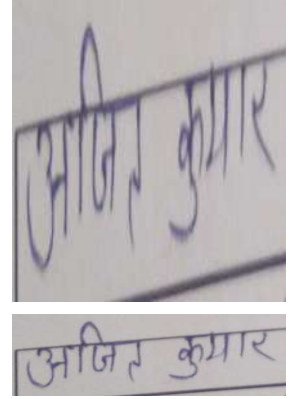 अजित कुमार
अजित कुमार